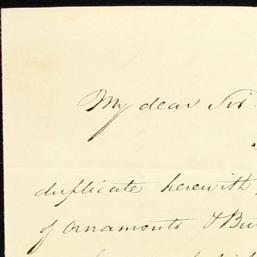 My dear Sir
duplicate herewith
of Ornaments & Bu